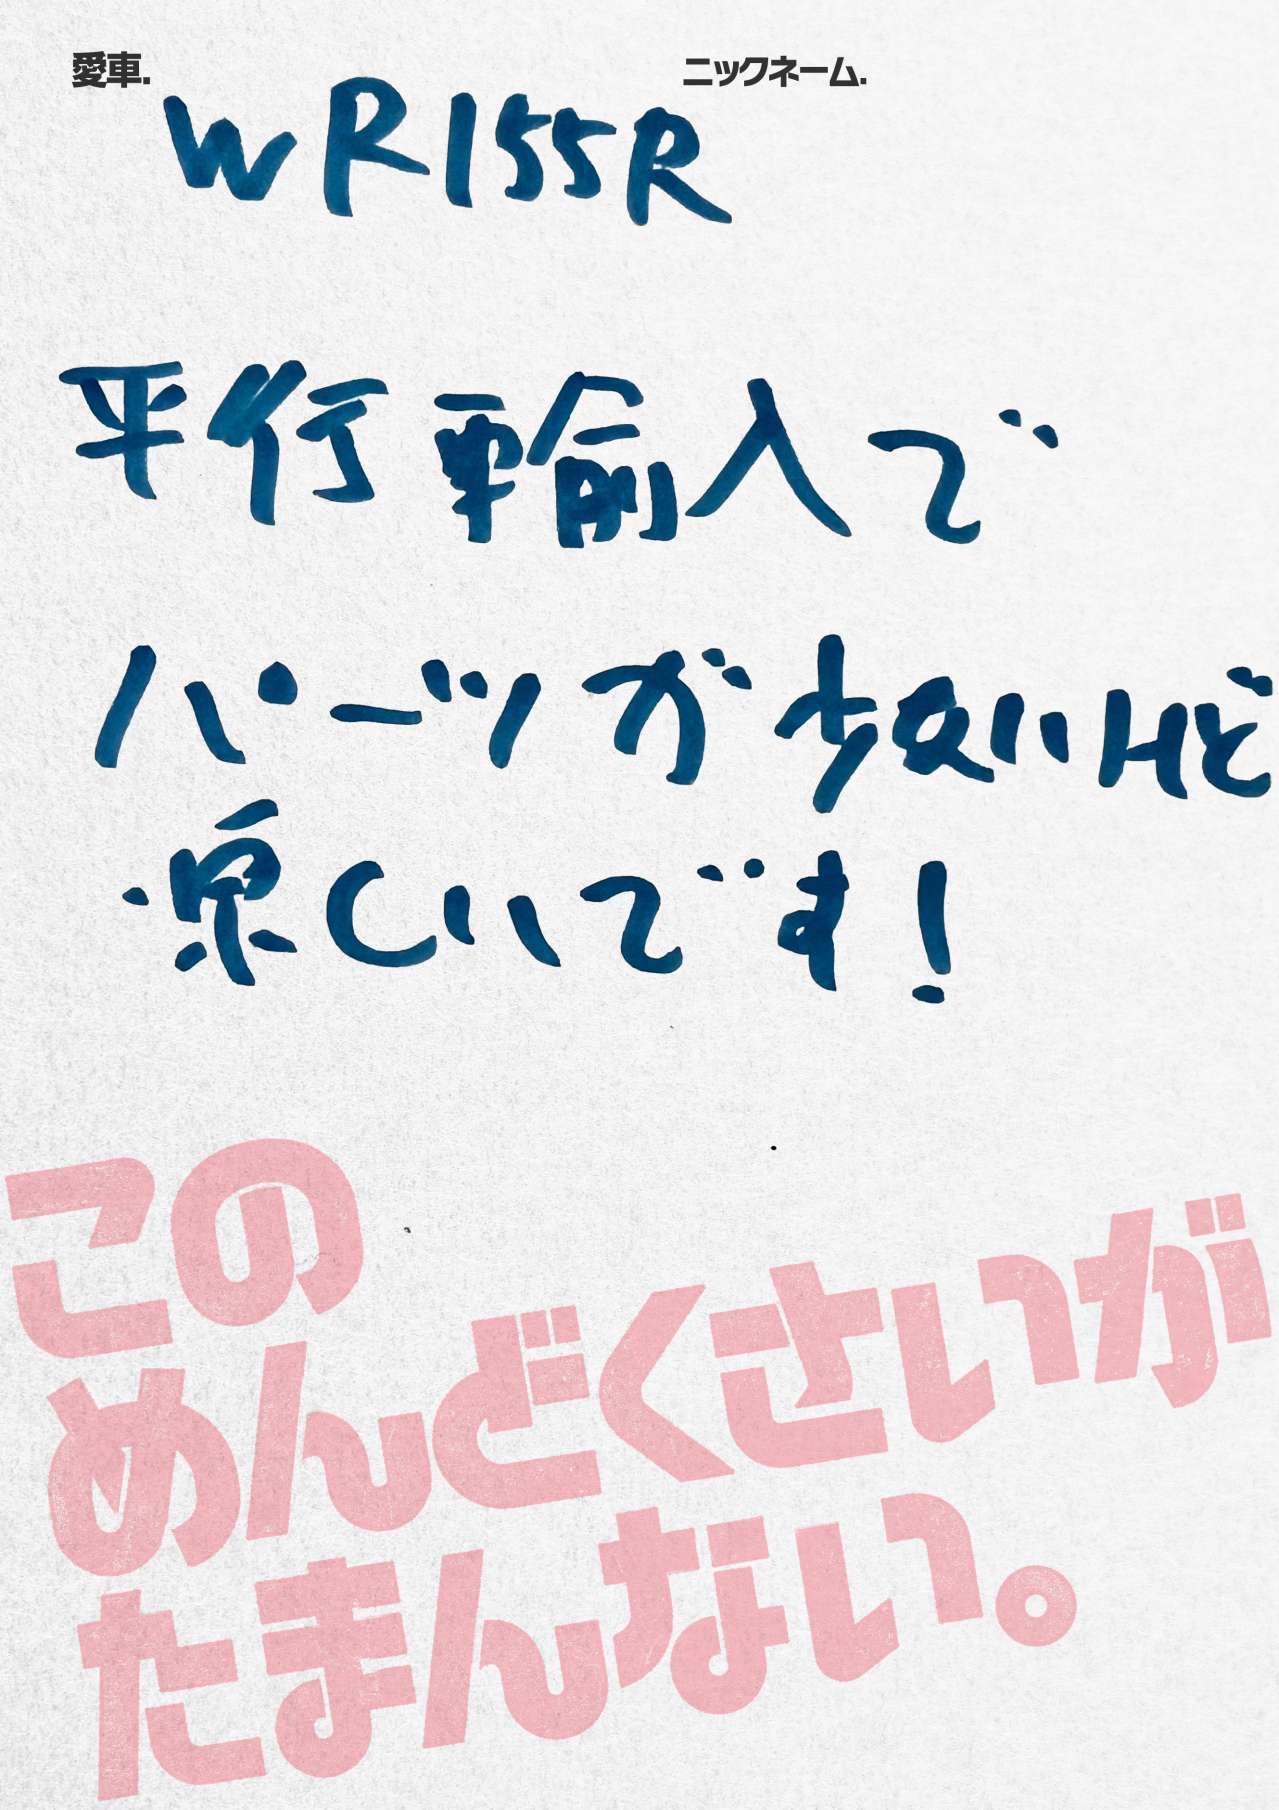 愛車. ニックネーム.
WR155R
平行輸入で
パーツが少ないけど
楽しいです!
この
めんどくさいが
たまんない。